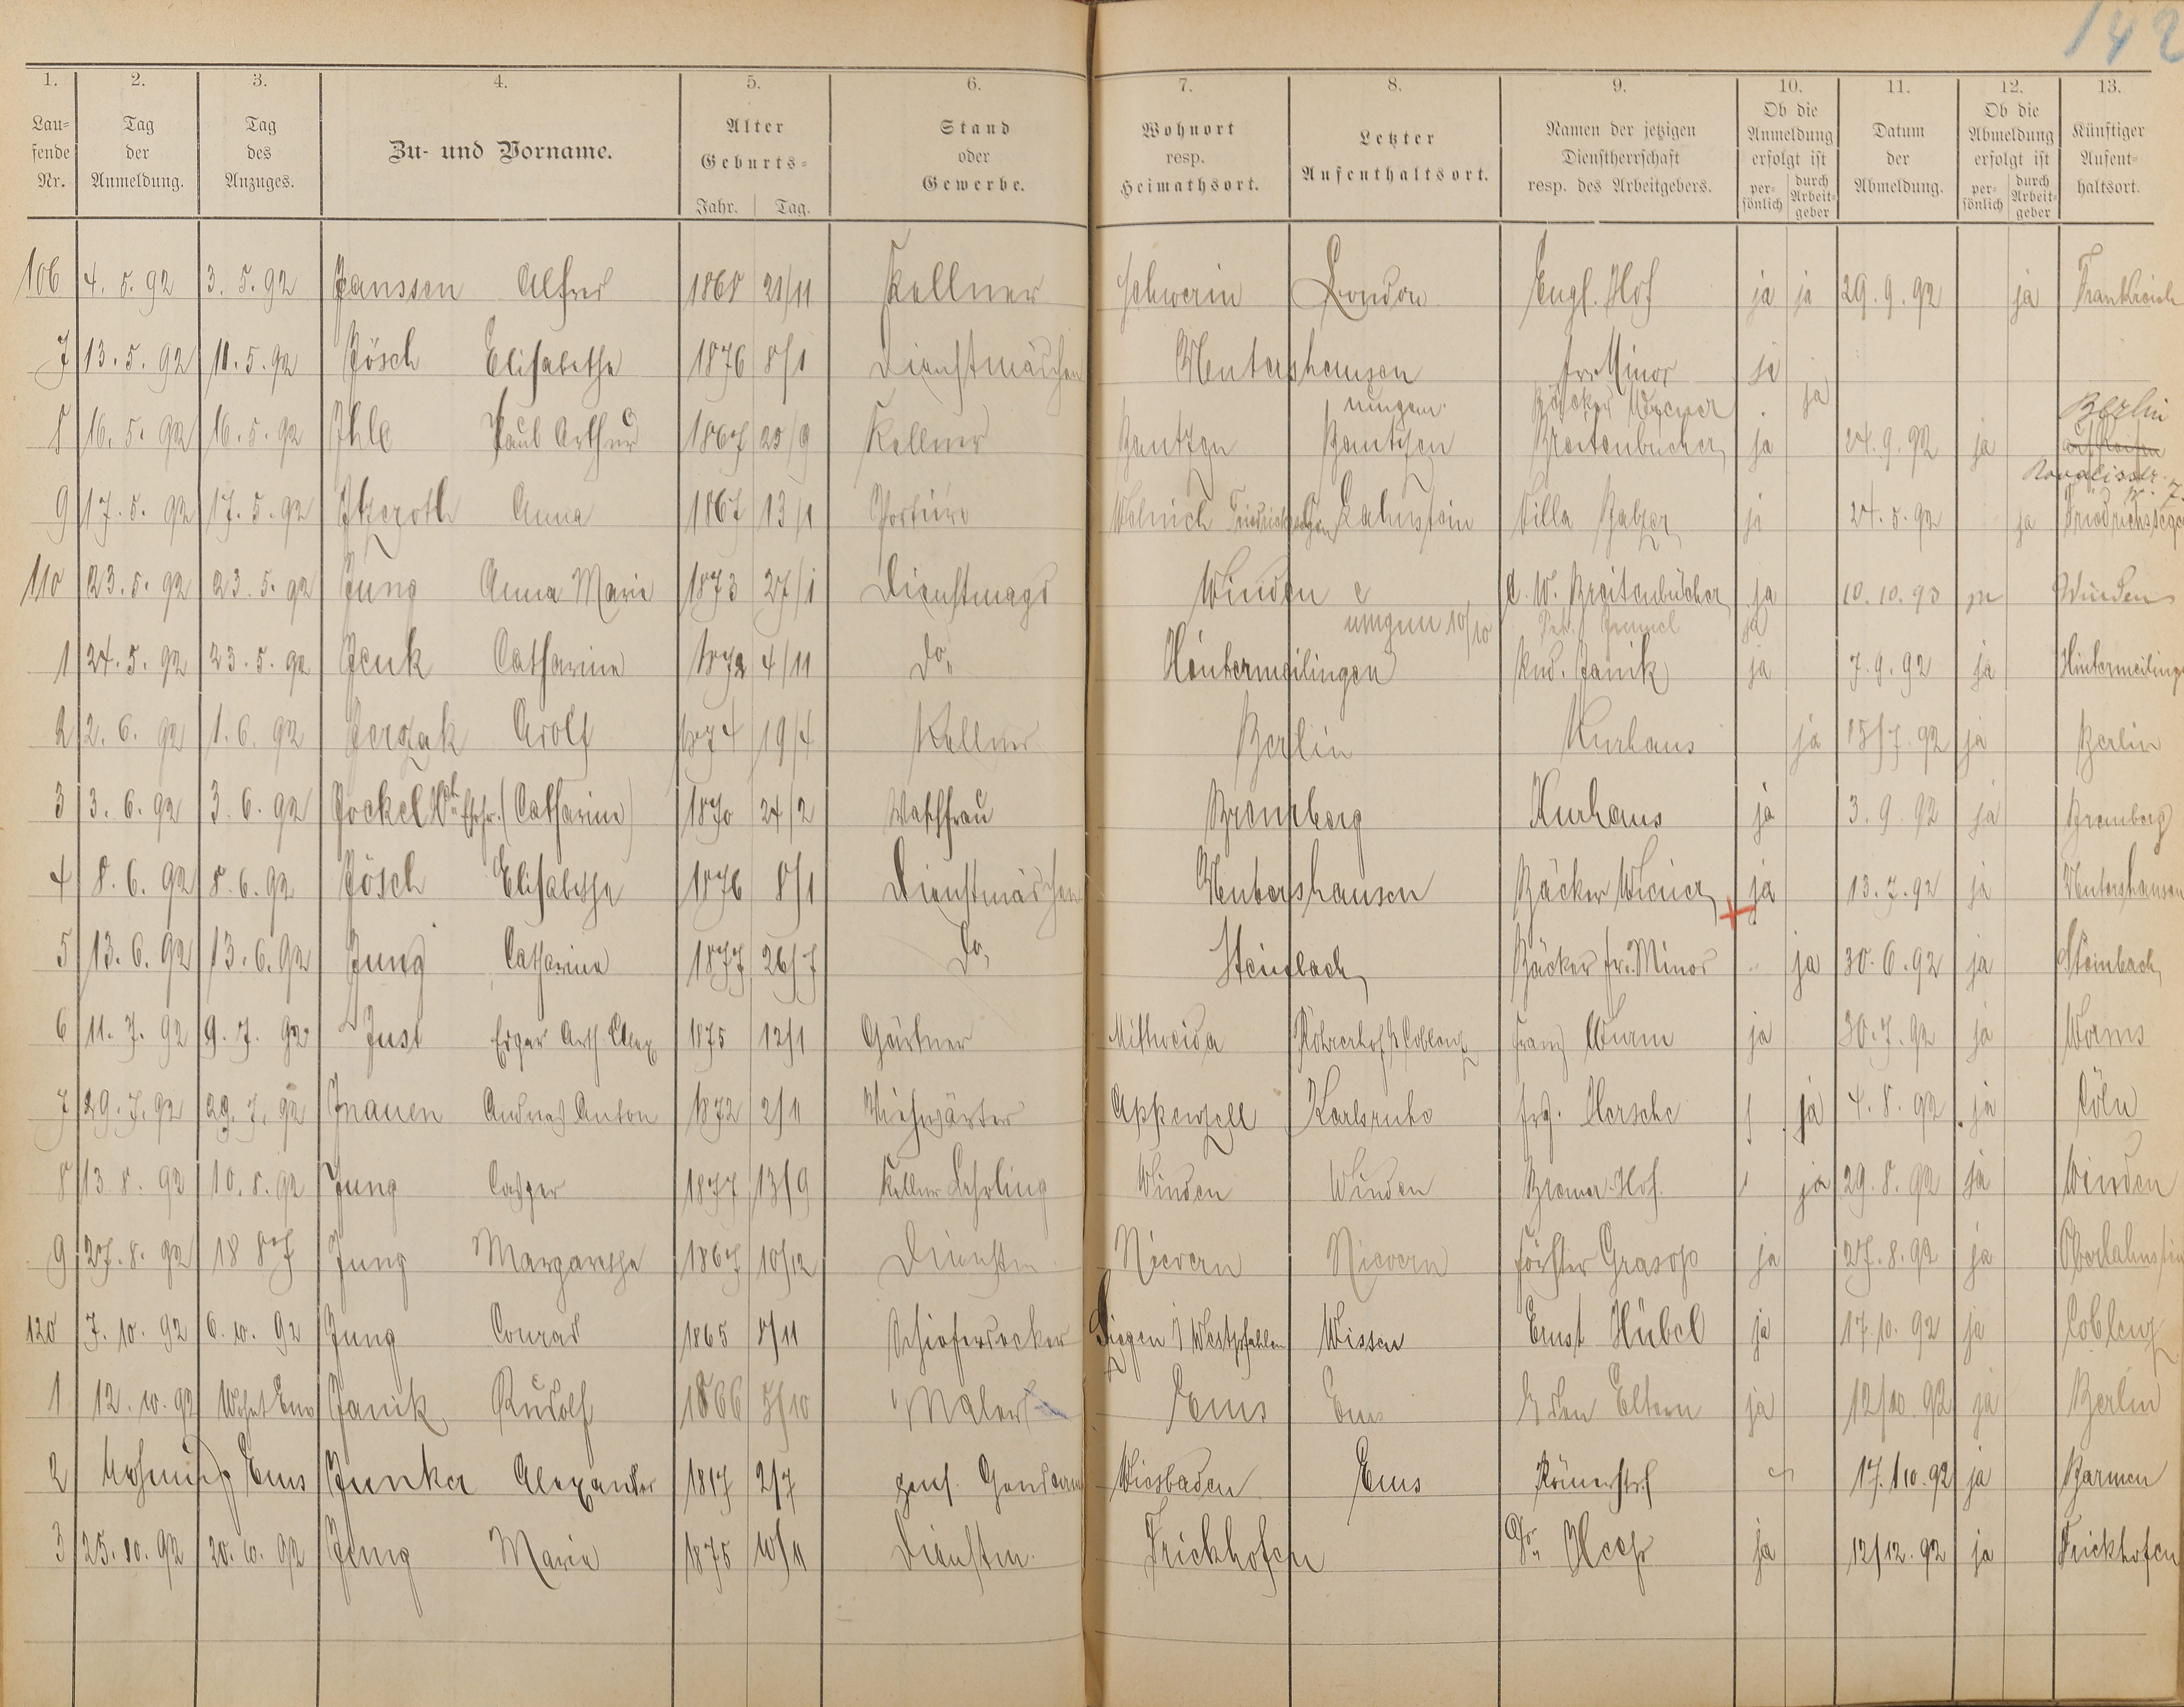 142
1. 2. 3. 4. 5. 6. 7. 8. 9. 10. 11. 12. 13.
Lau-
fende
Nr.
Tag
der
Anmeldung.
Tag
des
Anzuges.
Zu- und Vorname.
Alter
Geburts-
Jahr. Tag.
Stand
oder
Gewerbe.
Wohnort
resp.
Heimathsort.
Letzter
Aufenthaltsort.
Namen der jetzigen
Dienstherrschaft
resp. des Arbeitgebers.
Ob die
Anmeldung
erfolgt ist
per-
sönlich
durch
Arbeit-
geber
Datum
der
Abmeldung.
Ob die
Abmeldung
erfolgt ist
per-
sönlich
durch
Arbeit-
geber
Künftiger
Aufent-
haltsort.
106 4. 5. 92 3. 5. 92 Janssen Alfred 1868 21/11 Kellner Schwerin London Engl. Hof ja ja 29. 9. 92 ja Frankreich
7 13. 5. 92 11. 5. 92 Jösch Elisabetha 1876 8/1 Dienstmädchen Nentershausen Fr. Minor ja
umgem. Bäcker Wiener ja
8 16. 5. 92 16. 5. 92 Ihle Paul Arthur 1867 25/9 Kellner Bautzen Bautzen Breitenbücher ja 24. 9. 92 ja Berlin
auf Reisen
9 17. 5. 92 17. 5. 92 Itzeroth Anna 1867 13/1 Lahnstein Villa Balzer ja 24. 5. 92 ja Friedrichssegen
110 23. 5. 92 23. 5. 92 Jung Anna Marie 1873 27/1 Dienstmagd Winden C. W. Breitenbücher ja 10. 10. 93 ja Winden
umgem 10/10 ja
1 24. 5. 92 23. 5. 92 Jeuk Catharina 1872 4/11 Do. Hintermeilingen Rud. Janik ja 7. 9. 92 ja Hintermeilingen
2 2. 6. 92 1. 6. 92 Jerszak Adolf 1874 19/4 Kellner Berlin Kurhaus ja 15/7. 92 ja Berlin
3 3. 6. 92 3. 6. 92 Jockel Wh. Ehefr. (Catharina) 1870 24/2 Waschfrau Bremberg Kurhaus ja 3. 9. 92 ja Bremberg
4 8. 6. 92 8. 6. 92 Jösch Elisabetha 1876 8/1 Dienstmädchen Nentershausen Bäcker Wiener ja 13. 7. 92 ja Nentershausen
5 13. 6. 92 13. 6. 92 Jung Catharina 1877 26/7 Do. Steinbach Bäcker Fr. Minor ja 30. 6. 92 ja Steinbach
6 11. 7. 92 9. 7. 92 Just Edgar Arth. Alex 1875 12/1 Gärtner Mittweida Röhrerhof b Coblenz Franz Wurm ja 30. 7. 92 ja Worms
7 29. 7. 92 29. 7. 92 Inauen Andreas Anton 1872 2/11 Viehwärter Appenzell Karlsruhe Frz. Hersche ja 4. 8. 92 ja Cöln
8 13. 8. 92 10. 8. 92 Jung Casper 1877 13/9 Kellner Lehrling Winden Winden Bremer Hof ja 29. 8. 92 ja Winden
9 27. 8. 92 18 87 Jung Margaretha 1867 10/12 Dienstm. Nievern Nievern Förster ja 27. 8. 92 ja Oberlahnstein
120 7. 10. 92 6. 10. 92 Jung Conrad 1865 8/11 Schieferdecker Siegen i/ Westpfahlen Wissen Ernst Hübel ja 17. 10. 92 ja Coblenz
1 12. 10. 92 Wohnt Ems Janik Rudolf 1866 5/10 Maler Ems Ems b den Eltern ja 12/10. 92 ja Berlin
2 Wohnung Ems Junker Alexander 1817 2/7 pens. Gendarm Wiesbaden Ems Römerstr. 17. 10. 92 ja Barmen
3 25. 10. 92 20. 10. 92 Jung Maria 1875 10/11 Dienstm. Frickhofen ja 12/12. 92 ja Frickhofen